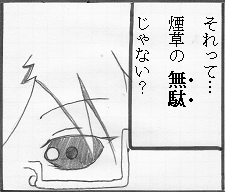 それって…
煙草の無駄
じゃない？